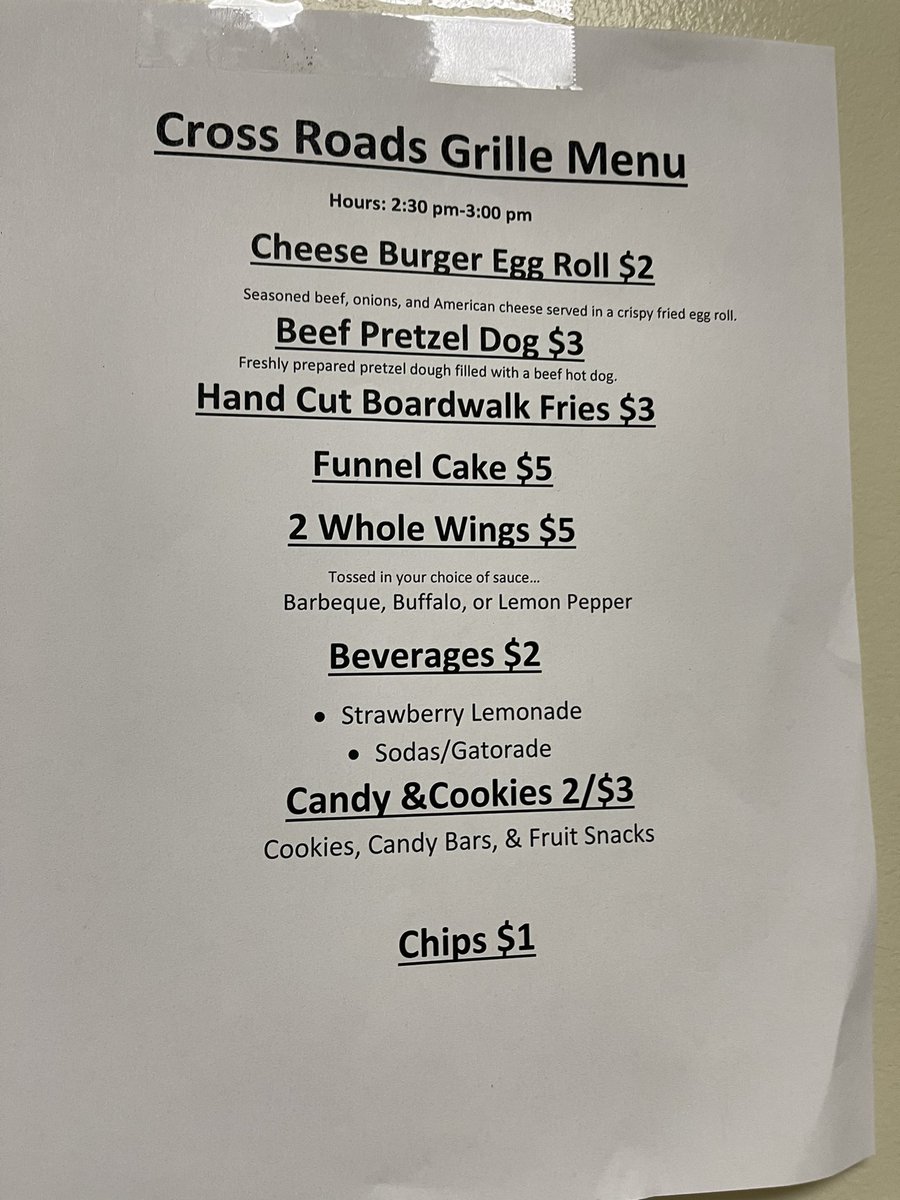 Cross Roads Grille Menu
Hours: 2:30 pm-3:00 pm
Cheese Burger Egg Roll $2
Seasoned beef, onions, and American cheese served in a crispy fried egg roll.
Beef Pretzel Dog $3
Freshly prepared pretzel dough filled with a beef hot dog.
Hand Cut Boardwalk Fries $3
Funnel Cake $5
2 Whole Wings $5
Tossed in your choice of sauce…
Barbeque, Buffalo, or Lemon Pepper
Beverages $2
• Strawberry Lemonade
• Sodas/Gatorade
Candy &Cookies 2/$3
Cookies, Candy Bars, & Fruit Snacks
Chips $1